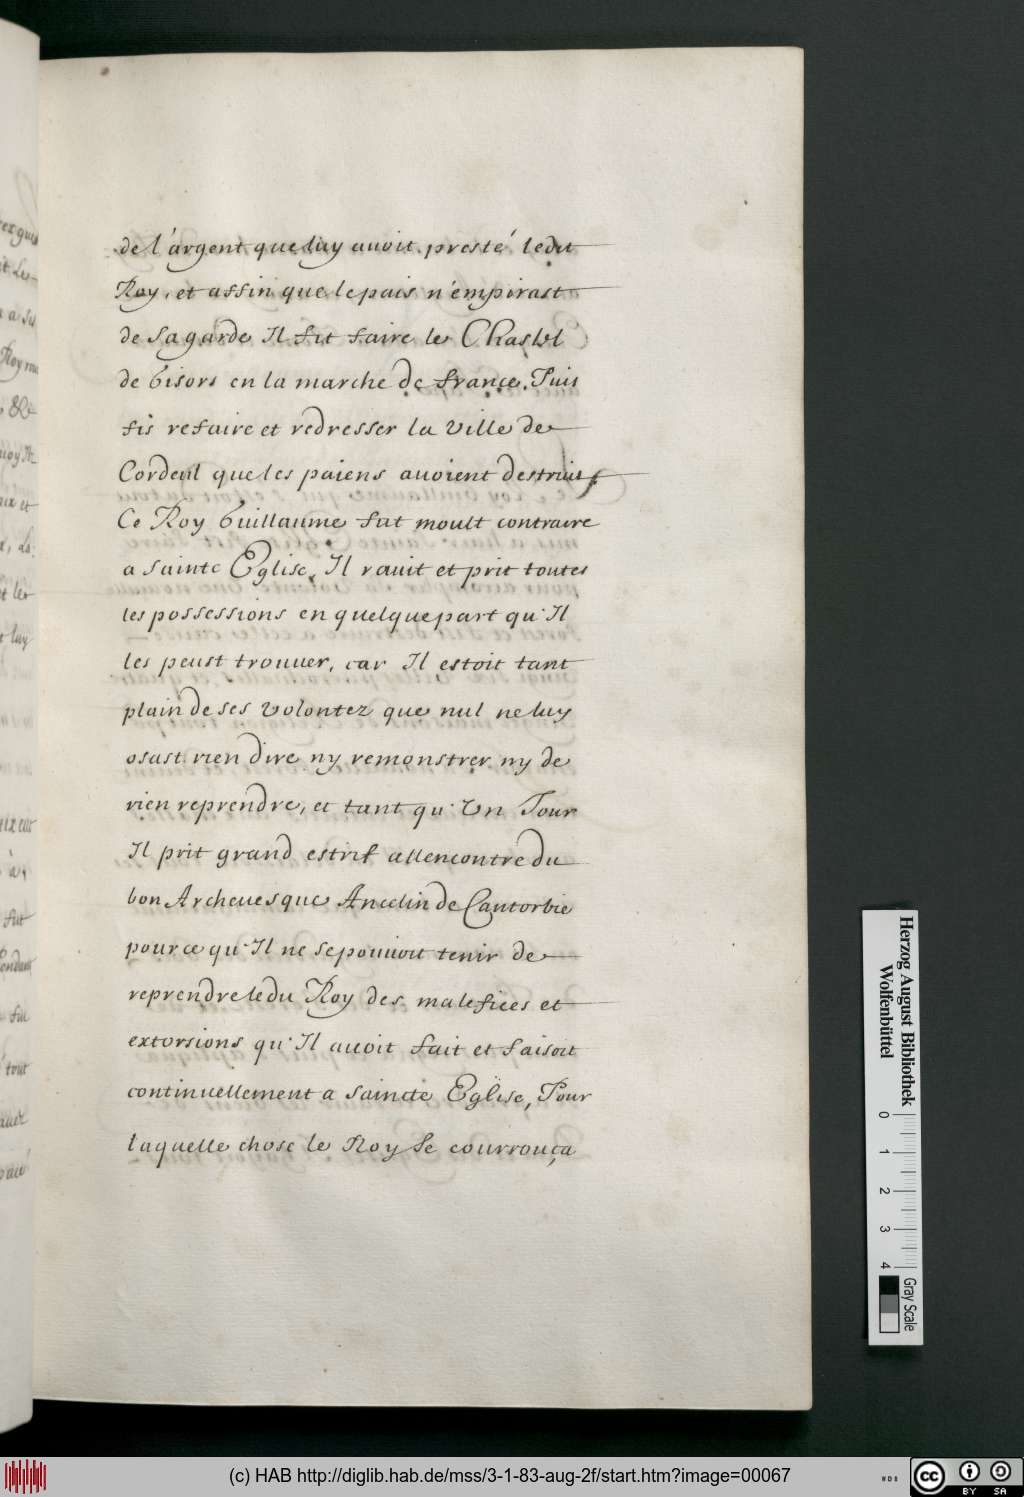 de l'argent que luy auoit presté ledit
Roy, et affin que le pais n'empirast
de sa garde Il fit faire le Chastel
de Gisors en la marche de france. Puis
fis refaire et redresser la ville de
Cordeul que les paiens auoient destruit,
Ce Roy Guillaume fut moult contraire
a sainte Eglise, Il rauit et prit toutes
les possessions en quelque part qu'Il
les peust trouuer, car Il estoit tant
plain de ses volontez que nul ne luy
osast rien dire ny remonstrer ny de
rien reprendre, et tant qu'Un Jour
Il prit grand estrif allencontre du
bon Archeuesque Ancelin de Cantorbie
pour ce qu'Il ne se pouuoit tenir de
reprendre ledu Roy des malefices et
extorsions qu'Il auoit fait et faisoit
continuellement a saincte Eglise, Pour
laquelle chose le Roy se courrouça
Herzog August Bibliothek
Wolfenbüttel
0 1 2 3 4
Gray Scale
(c) HAB http://diglib.hab.de/mss/3-1-83-aug-2f/start.htm?image=00067
WDB
cc BY SA